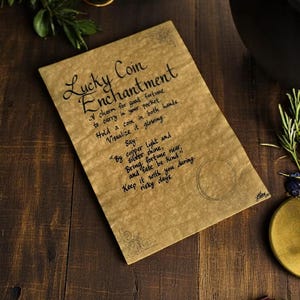 Lucky Coin
Enchantment
A charm for good fortune
to carry in your pocket
Hold a coin in both hands
Visualize it glowing
Say
"By copper light and
silver shine,
Bring fortune near,
and fate be kind."
Keep it with you during
risky days